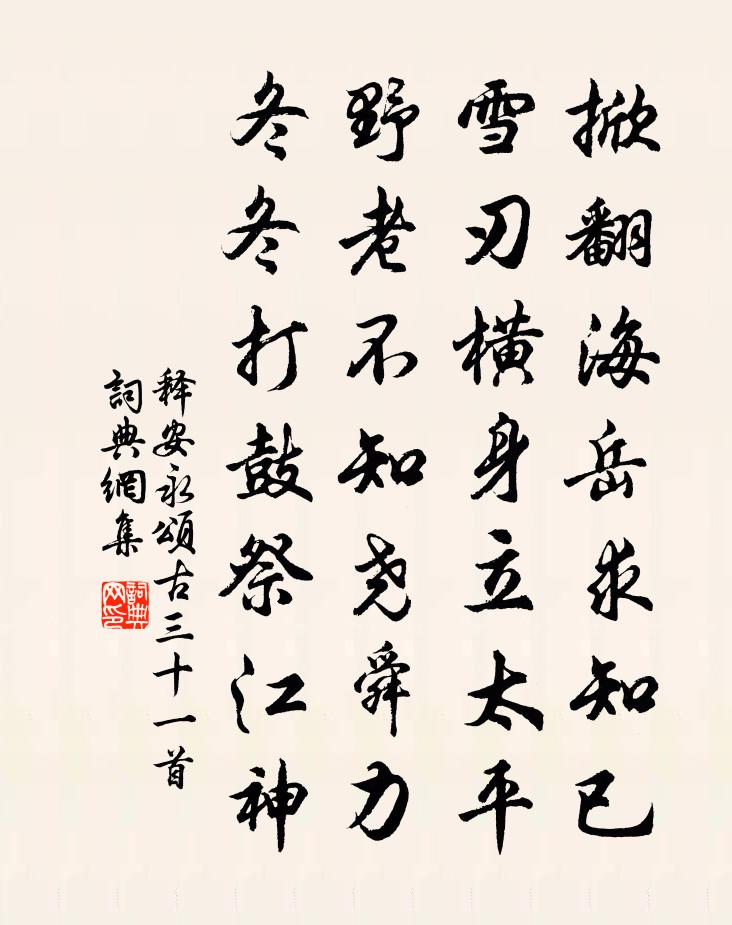 掀翻海岳求知已
雪刃横身立太平
野老不知尧舜力
冬冬打鼓祭江神
释安永頌古三十一首
詞典網集
詞典网印